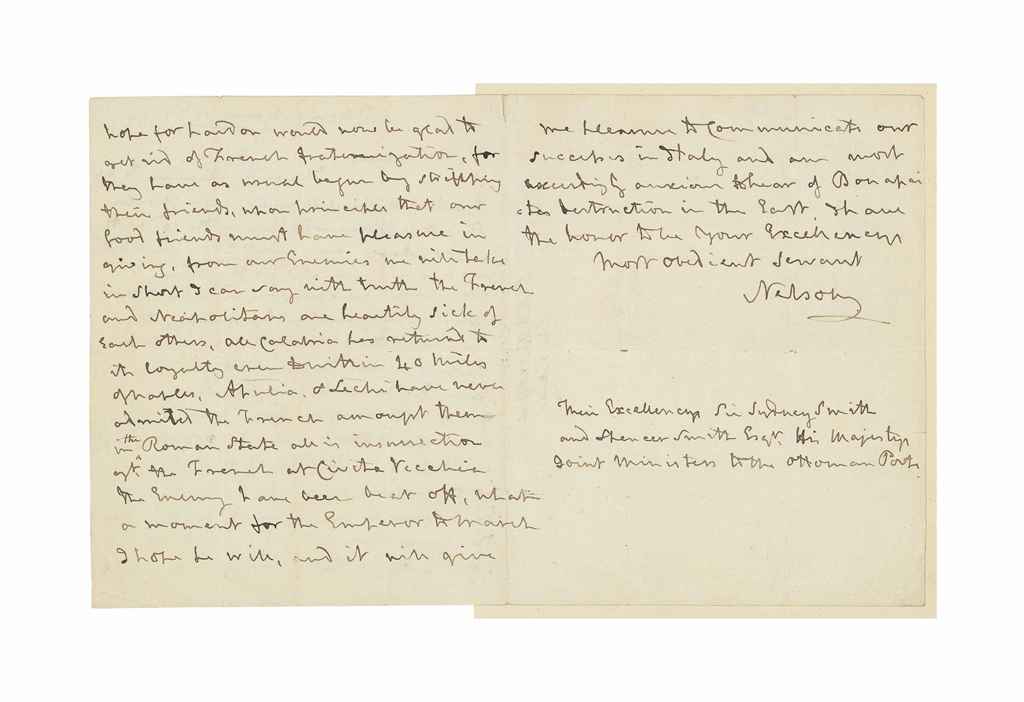 hope for pardon would now be glad to
get rid of French fraternization, for
they have as usual begun by stripping
their friends, upon principles that our
Good friends must have pleasure in
giving, from our Enemies we will take
in short I can say with truth the French
and Neapolitans are heartily sick of
Each others, all Calabria has return'd to
its loyalty even within 40 Miles
of Naples, Apulia, & Lechi have never
admitted the French amongst them
in the Roman State all is insurrection
agt. the French at Civita Vecchia
the Enemy have been beat off, what
a moment for the Emperor to March
I hope he will, and it will give
me pleasure to Communicate our
successes in Italy and am most
exceedingly anxious to hear of Bonapar
tes destruction in the East, I have
the honor to be Your Excellencys
Most Obedient Servant
Nelson
Their Excellencys Sir Sydney Smith
and Spencer Smith Esqr. His Majestys
Joint Ministers to the Ottoman Porte